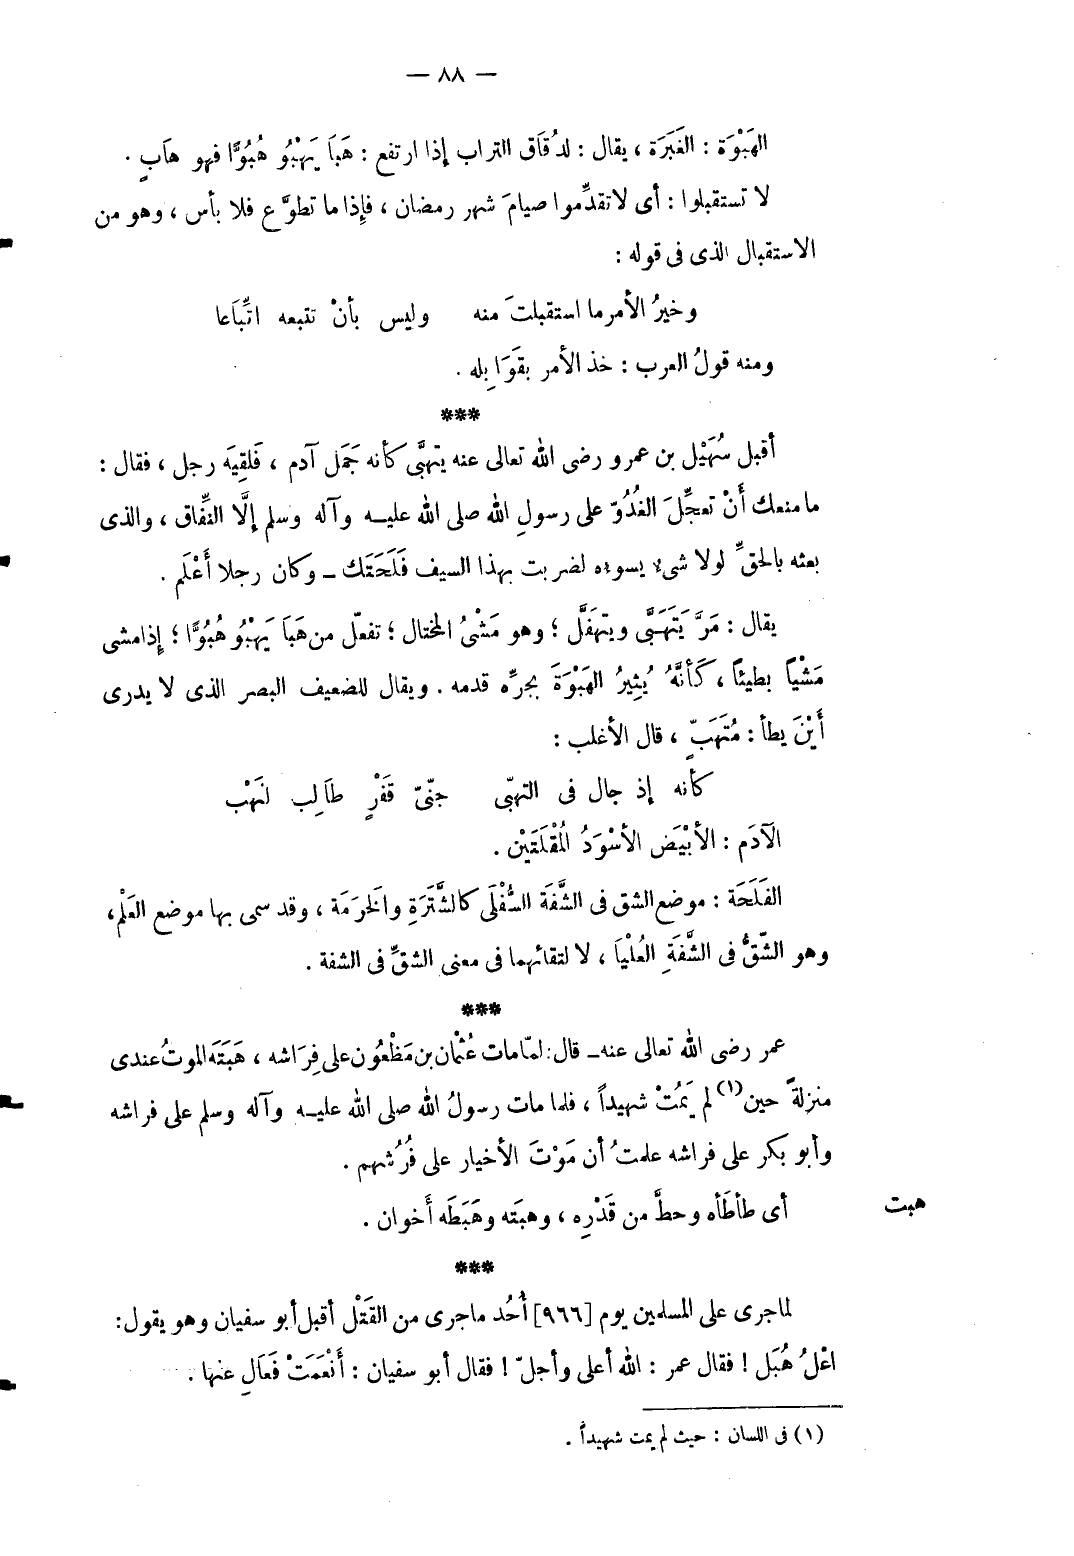 — ٨٨ —
الهَبْوَة : الغَبَرَة ، يقال : لدُقَاق التراب إذا ارتفع : هَبَا يَهْبُو هُبُوًّا فهو هَابٍ .
لا تستقبلوا : أى لا تقدِّموا صيامَ شهر رمضان ، فإِذا ما تطوَّع فلا بأس ، وهو من
الاستقبال الذى فى قوله :
وخيرُ الأمر ما استقبلتَ منه وليس بأنْ تتبعه اتِّبَاعا
ومنه قولُ العرب : خذ الأمر بقَوَابِله .
***
أقبل سُهَيْل بن عمرو رضى الله تعالى عنه يتهبَّى كأنه جَمَل آدم ، فَلقِيَه رجل ، فقال :
ما منعك أَنْ تعجِّلَ الغُدُوّ على رسولِ الله صلى الله عليه وآله وسلم إلَّا النِّفاق ، والذى
بعثه بالحقِّ لولا شىء يسوءه لضربت بهذا السيف فَلَحَتَك ــ وكان رجلا أَعْلَم .
يقال : مَرَّ يَتَهَبَّى ويتهَفَّل ؛ وهو مَشْىُ المختال ؛ تفعّل من هَبَا يَهْبُو هُبُوًّا ؛ إِذا مشى
مَشْيًا بطيئًا ، كَأنَّهُ يُثِيرُ الهَبْوَةَ بجرِّه قدمه . ويقال للضعيف البصر الذى لا يدرى
أَيْنَ يطأ : مُتَهَبّ ، قال الأغلب :
كأنه إذ جال فى التهبّى جنّىّ قَفْرٍ طَالِب لنَهْب
الآدَم : الأبْيَض الأسْوَدُ المُقْلَتَيْن .
الفَلَحَة : موضع الشق فى الشَّفَة السُّفْلَى كالشَّتَرَةِ والخرَمَة ، وقد سمى بها موضع العَلْم ،
وهو الشّقُّ فى الشَّفَةِ العُلْيَا ، لالتقائهما فى معنى الشقِّ فى الشفة .
***
عمر رضى الله تعالى عنه ــ قال : لمّا مات عُثْمان بن مَظْعُون على فِرَاشه ، هَبَتَه الموتُ عندى
منزلةً حين(١) لم يَمُتْ شهيداً ، فلما مات رسولُ الله صلى الله عليه وآله وسلم على فراشه
وأبو بكر على فراشه علمتُ أن مَوْتَ الأخيار على فُرُشهم .
هبت أى طأطَأه وحطَّ من قَدْرِه ، وهبَته وهَبَطَه أَخوان .
***
لما جرى على المسلمين يوم [٩٦٦] أُحُد ما جرى من القَتْل أقبل أبو سفيان وهو يقول :
اعْلُ هُبَل ! فقال عمر : الله أعلى وأجلّ ! فقال أبو سفيان : أَنْعَمَتْ فَعَالِ عنها .
(١) فى اللسان : حيث لم يمت شهيداً .